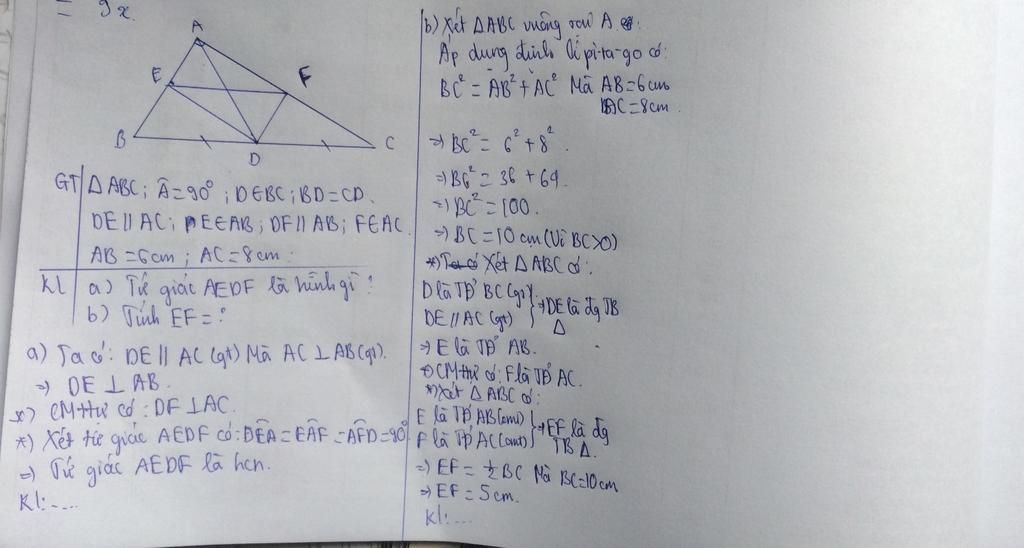 = 9x.
A
E
F
B
D
C
GT ΔABC; Â=90°; D∈BC; BD=CD.
DE // AC; E∈AB; DF // AB; F∈AC.
AB = 6cm; AC = 8cm.
KL a) Tứ giác AEDF là hình gì?
b) Tính EF = ?
a) Ta có: DE // AC (gt) Mà AC ⊥ AB (gt).
⇒ DE ⊥ AB.
*) CM ttự có: DF ⊥ AC.
*) Xét tứ giác AEDF có: DÊA = EÂF = AF̂D = 90°
⇒ Tứ giác AEDF là hcn.
Kl: ....
b) Xét ΔABC vuông tại A có:
Áp dụng định lí pi-ta-go có:
BC² = AB² + AC² Mà AB = 6cm
AC = 8cm.
⇒ BC² = 6² + 8².
⇒ BC² = 36 + 64.
⇒ BC² = 100.
⇒ BC = 10 cm (Vì BC > 0)
*) Xét ΔABC có:
D là TĐ BC (gt) } ⇒ DE là đg TB
DE // AC (gt) Δ
⇒ E là TĐ AB.
CM ttự có: F là TĐ AC.
*) Xét ΔABC có:
E là TĐ AB (cmt) } ⇒ EF là đg
F là TĐ AC (cmt) TB Δ.
⇒ EF = ½ BC Mà BC = 10cm
⇒ EF = 5cm.
Kl: ....